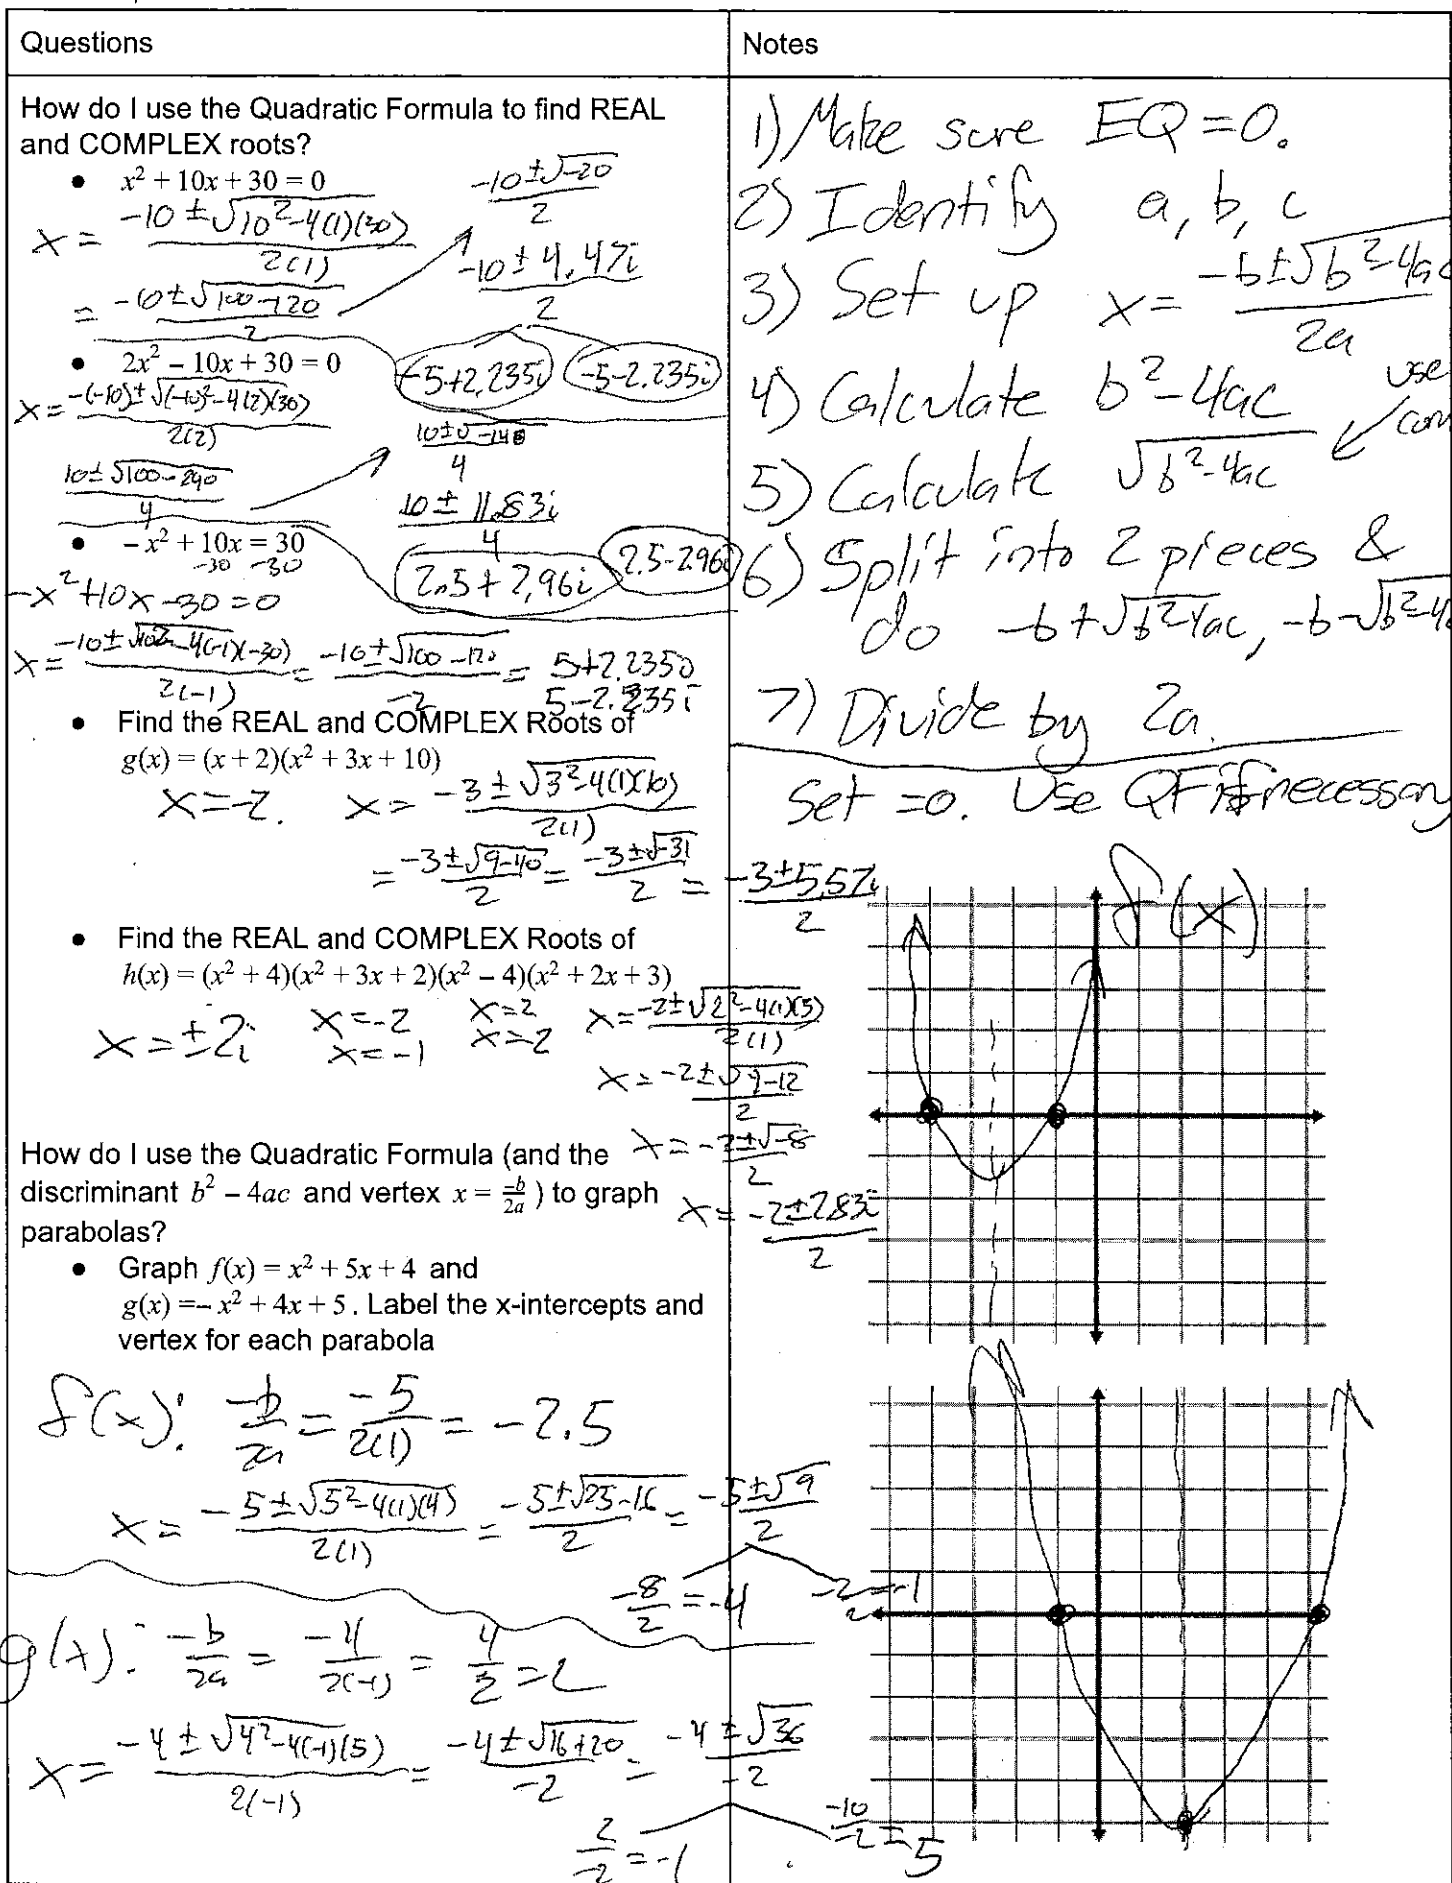 Questions
How do I use the Quadratic Formula to find REAL
and COMPLEX roots?
• x² + 10x + 30 = 0
x = (-10 ± √(10² - 4(1)(30))) / 2(1)
= (-10 ± √(100 - 120)) / 2
(-10 ± √-20) / 2
(-10 ± 4.47i) / 2
-5+2.235i -5-2.235i
• 2x² – 10x + 30 = 0
x = (-(-10) ± √((-10)² - 4(2)(30))) / 2(2)
(10 ± √(100 - 240)) / 4
(10 ± √-140) / 4
(10 ± 11.83i) / 4
2.5 + 2.96i 2.5-2.96i
• – x² + 10x = 30
-30 -30
-x² + 10x - 30 = 0
x = (-10 ± √(10² - 4(-1)(-30))) / 2(-1) = (-10 ± √(100 - 120)) / -2 = 5+2.235i
5-2.235i
• Find the REAL and COMPLEX Roots of
g(x) = (x + 2)(x² + 3x + 10)
x = -2. x = (-3 ± √(3² - 4(1)(10))) / 2(1)
= (-3 ± √(9 - 40)) / 2 = (-3 ± √-31) / 2 = (-3 ± 5.57i) / 2
• Find the REAL and COMPLEX Roots of
h(x) = (x² + 4)(x² + 3x + 2)(x² – 4)(x² + 2x + 3)
x = ±2i x = -2 x = 2 x = (-2 ± √(2² - 4(1)(3))) / 2(1)
x = -1 x = -2
x = (-2 ± √(9-12)) / 2
x = (-2 ± √-8) / 2
x = (-2 ± 2.83i) / 2
How do I use the Quadratic Formula (and the
discriminant b² – 4ac and vertex x = -b/2a ) to graph
parabolas?
• Graph f(x) = x² + 5x + 4 and
g(x) = – x² + 4x + 5. Label the x-intercepts and
vertex for each parabola
f(x): -b/2a = -5/2(1) = -2.5
x = (-5 ± √(5² - 4(1)(4))) / 2(1) = (-5 ± √(25 - 16)) / 2 = (-5 ± √9) / 2
-8/2 = -4 -2/2 = -1
g(x): -b/2a = -4/2(-1) = 4/2 = 2
x = (-4 ± √(4² - 4(-1)(5))) / 2(-1) = (-4 ± √(16 + 20)) / -2 = (-4 ± √36) / -2
2/-2 = -1 -10/-2 = 5
Notes
1) Make sure EQ = 0.
2) Identify a, b, c
3) Set up x = (-b ± √(b² - 4ac)) / 2a
4) Calculate b² - 4ac
use
5) Calculate √(b² - 4ac)
6) Split into 2 pieces &
do -b + √(b² - 4ac), -b - √(b² - 4
7) Divide by 2a.
Set = 0. Use QF if necessary
f(x)